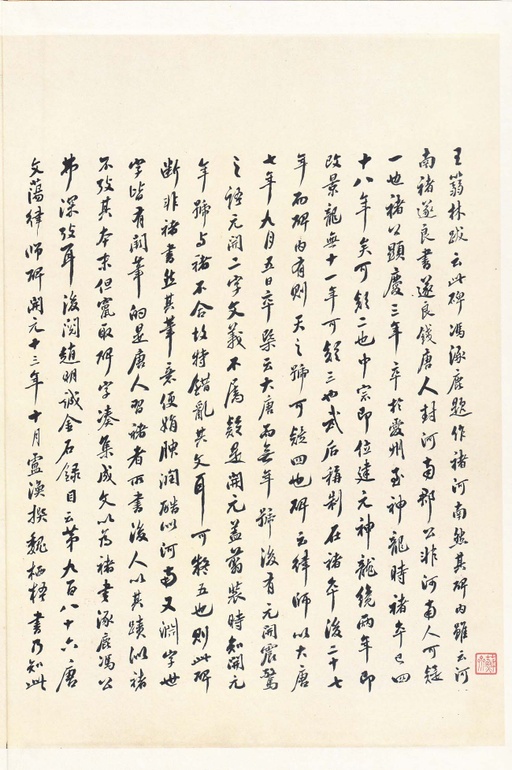 王蒻林跋云此碑馮涿鹿題作褚河南然其碑内雖云河
南褚遂良書遂良錢唐人封河南郡公非河南人可疑
一也褚公顯慶三年卒於愛州至神龍時褚卒已四
十八年矣可疑二也中宗即位建元神龍纔兩年即
改景龍無十一年可疑三也武后稱制在褚卒後二十七
年而碑内有則天之號可疑四也碑云律師以大唐
七年九月五日卒槩云大唐而無年號後有元開震驚
之語元開二字文義不属疑是開元盖蒻裝時知開元
年號与褚不合故特錯亂其文耳可疑五也則此碑
斷非褚書然其筆意便娟腴潤酷似河南又淵字世
字皆有闕筆的是唐人習褚者所書後人以其蹟似褚
不攷其本末但竄取碑字凑集成文以為褚書涿鹿馮公
弗深攷耳後閲趙明誠金石録目云第九百八十六唐
文蕩律師碑開元十三年十月盧渙撰魏栖梧書乃知此